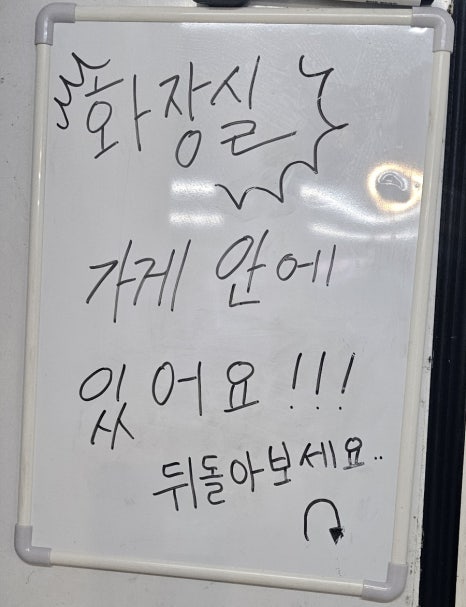 화장실
가게 안에
있어요!!!
뒤돌아보세요..